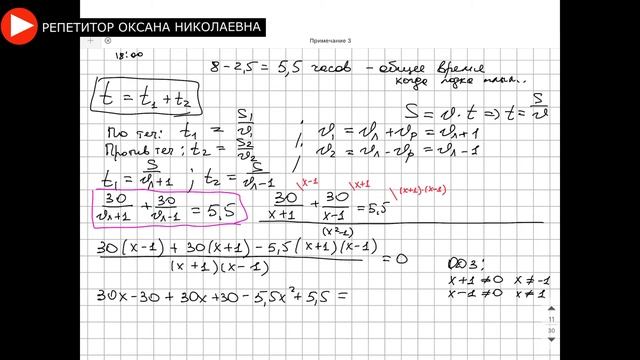 РЕПЕТИТОР ОКСАНА НИКОЛАЕВНА
Примечание 3
18:00
8 – 2,5 = 5,5 часов – общее время
когда лодка плыл..
t = t₁ + t₂
S = υ · t ⇒ t = S/υ
По теч: t₁ = S₁/υ₁ ; υ₁ = υл + υр = υл + 1
Против теч: t₂ = S₂/υ₂ ; υ₂ = υл – υр = υл – 1
t₁ = S/(υл+1) ; t₂ = S/(υл–1)
30/(υл+1) + 30/(υл–1) = 5,5
30/(x+1) \x–1 + 30/(x–1) \x+1 = 5,5 \(x+1)·(x–1)
(x²–1)
(30(x–1) + 30(x+1) – 5,5(x+1)(x–1))/((x+1)(x–1)) = 0
ОДЗ:
x+1≠0 x≠–1
x–1≠0 x≠1
30x–30 + 30x+30 – 5,5x² + 5,5 =
11
30